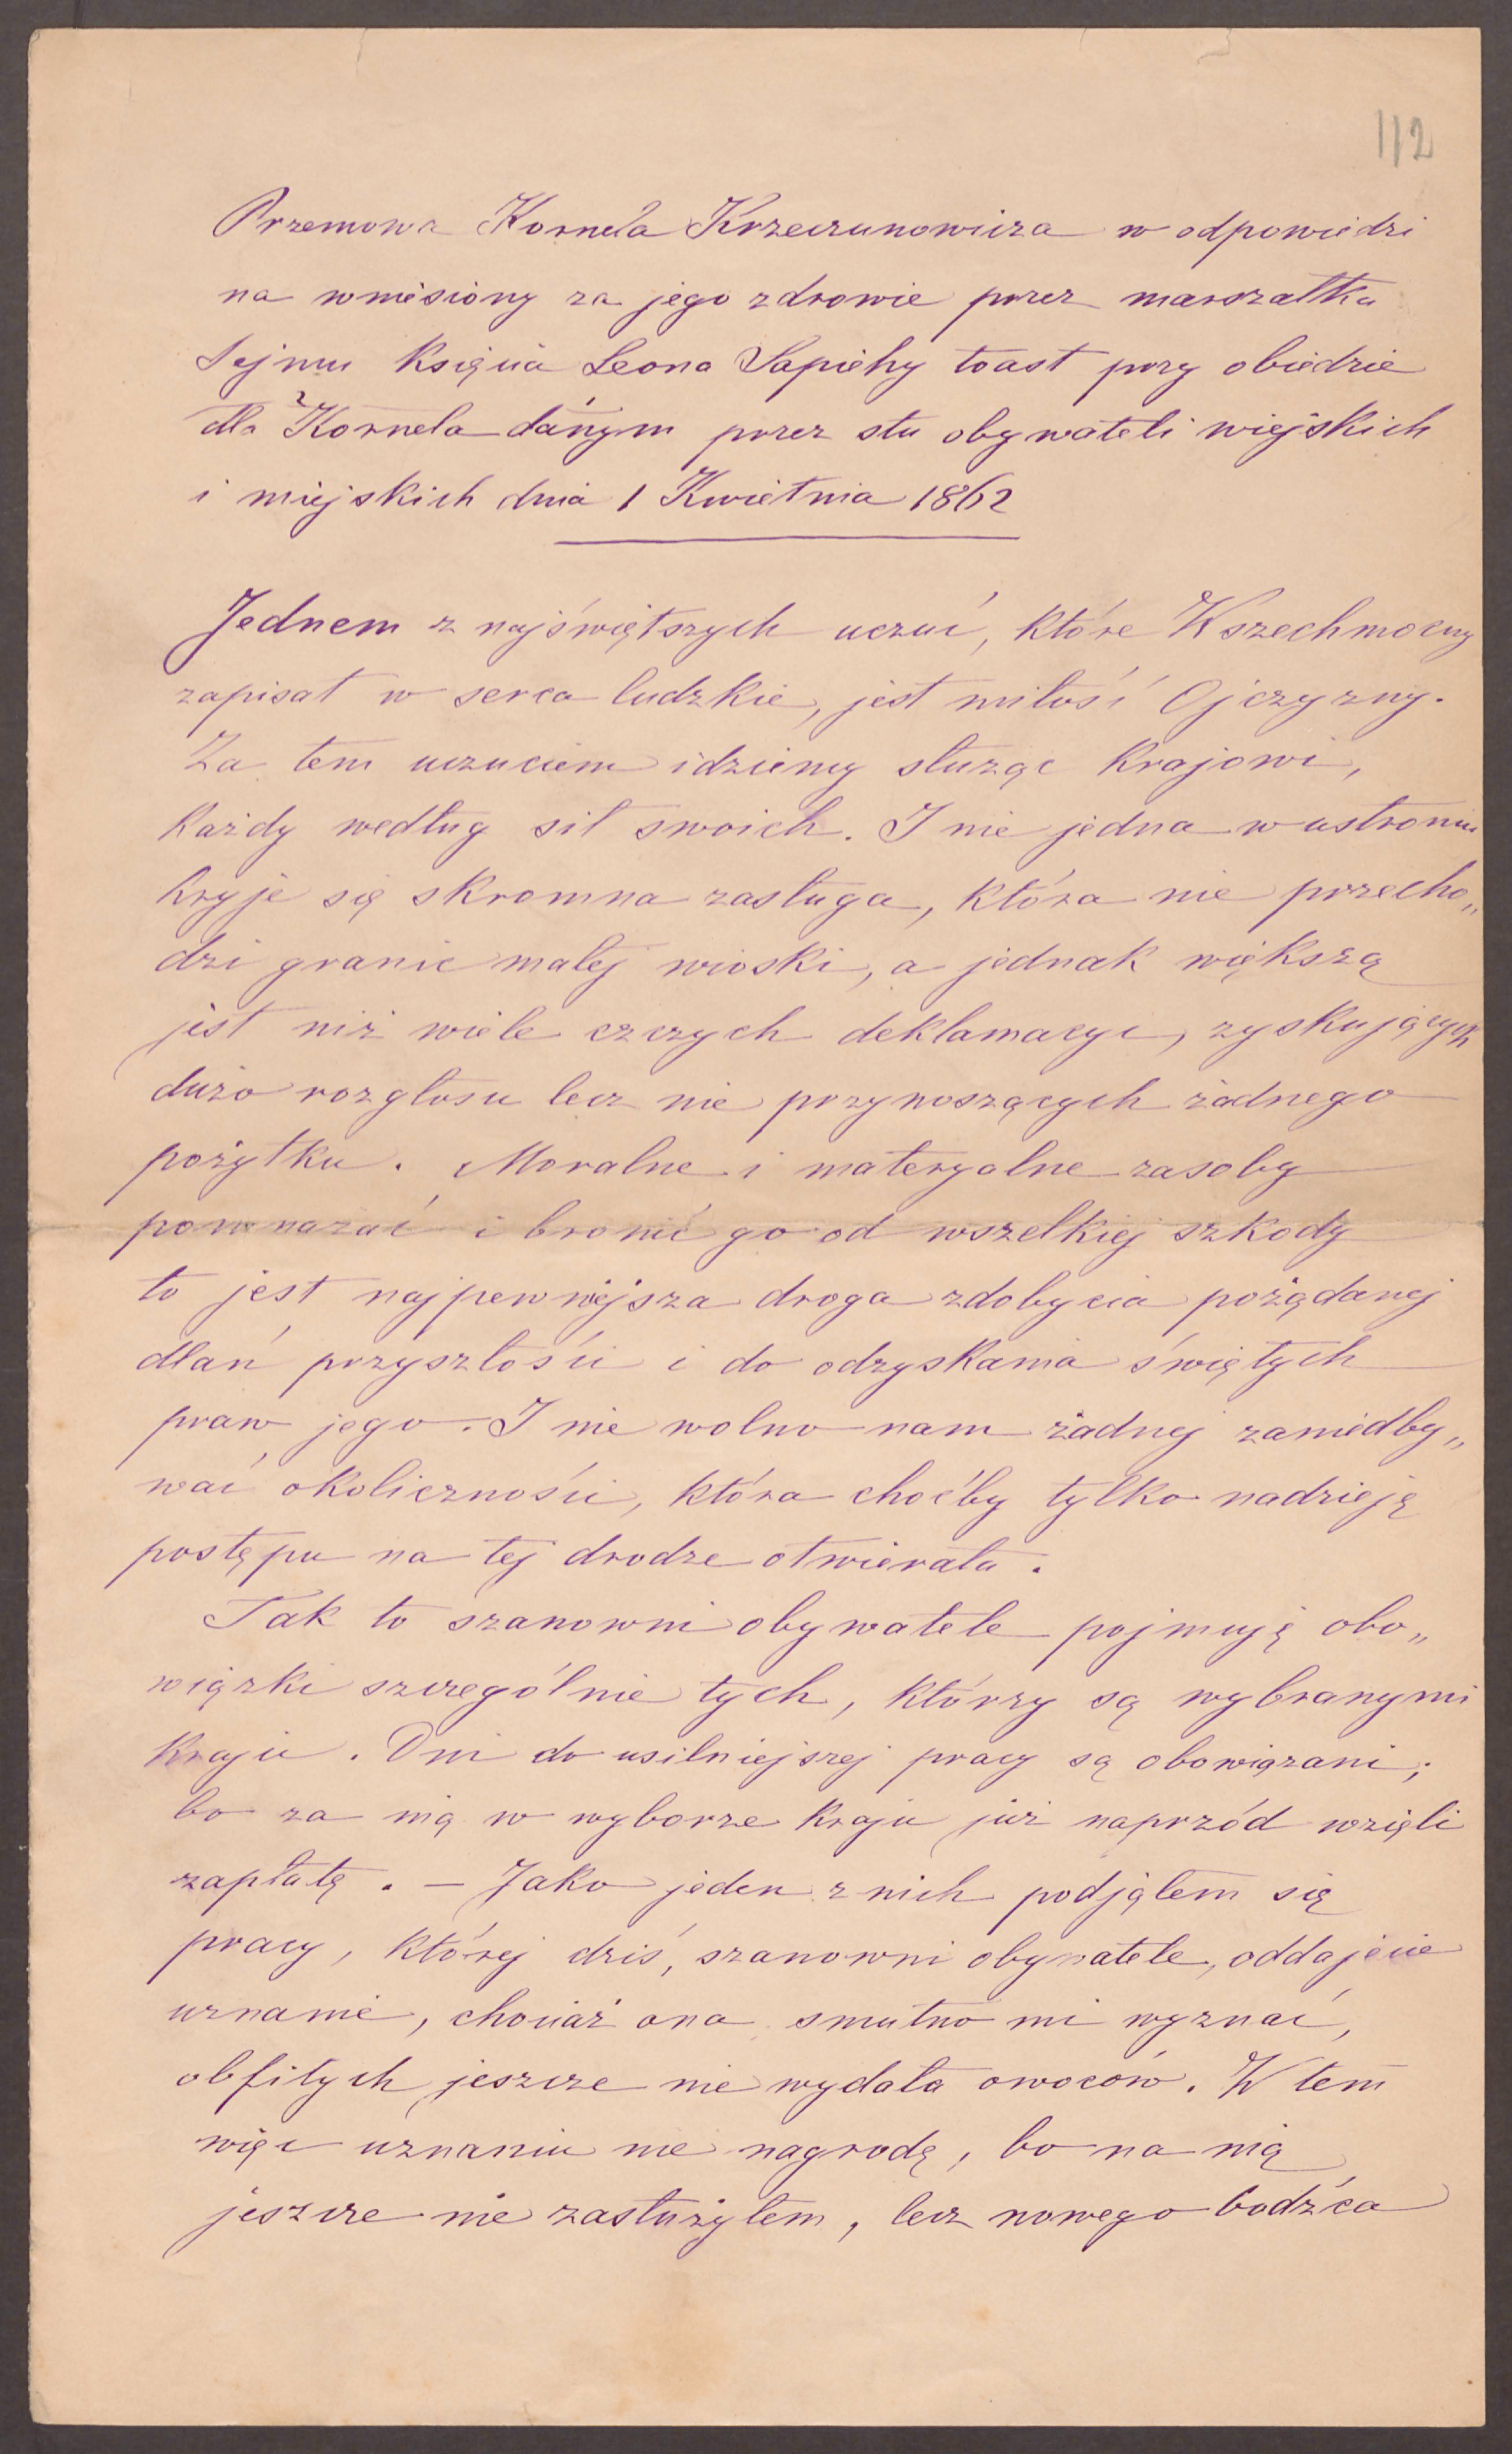 112
Przemowa Kornela Krzeczunowicza w odpowiedzi
na wniesiony za jego zdrowie przez marszałka
Sejmu Księcia Leona Sapiehy toast przy obiedzie
dla Kornela danym przez stu obywateli wiejskich
i miejskich dnia 1 Kwietnia 1862
Jednem z najświętszych uczuć, które Wszechmocny
zapisał w serca ludzkie, jest miłość Ojczyzny.
Za tem uczuciem idziemy służąc Krajowi,
Każdy według sił swoich. I nie jedna w ustroniu
kryje się skromna zasługa, która nie przecho„
dzi granic małej wioski, a jednak większą
jest niż wiele czczych deklamacyi, zyskujących
dużo rozgłosu lecz nie przynoszących żadnego
pożytku. Moralne i materyalne zasoby
pomnażać i bronić go od wszelkiej szkody
to jest najpewniejsza droga zdobycia pożądanej
dlań przyszłości i do odzyskania świętych
praw jego. I nie wolno nam żadnej zaniedby„
wać okoliczności, która choćby tylko nadzieję
postępu na tej drodze otwierała.
Tak to szanowni obywatele pojmuję obo„
wiązki szczególnie tych, którzy są wybranymi
Kraju. Oni do usilniejszej pracy są obowiązani;
bo za nią w wyborze Kraju już naprzód wzięli
zapłatę. — Jako jeden z nich podjąłem się
pracy, której dziś, szanowni obywatele, oddajecie
uznanie, chociaż ona smutno mi wyznać,
obfitych jeszcze nie wydała owoców. W tem
więc uznaniu nie nagrodę, bo na nią
jeszcze nie zasłużyłem, lecz nowego bodźca